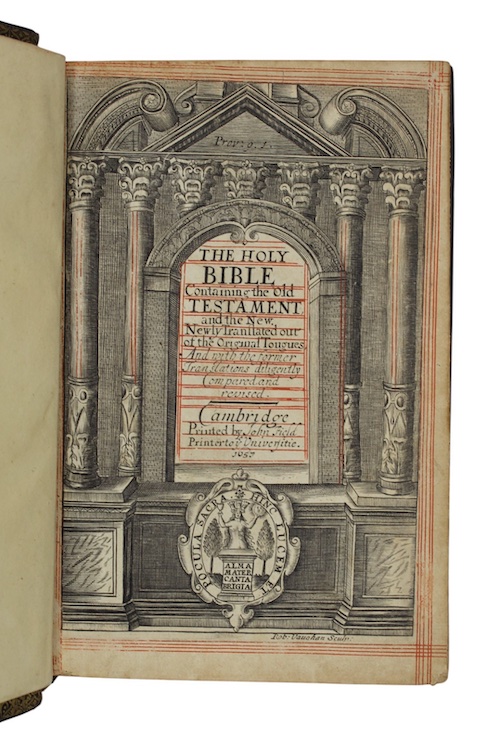 Prov: 9. 1.
THE HOLY
BIBLE
Containing the Old
TESTAMENT
and the New,
Newly Tranſlated out
of the Original Tongues,
And with the former
Tranſlations diligently
Compared and
revised.
Cambridge
Printed by John Field
Printer to yͤ Universitie.
1657
HINC LUCEM ET POCULA SACRA
ALMA
MATER
CANTA
BRIGIA
Rob: Vaughan Sculp: